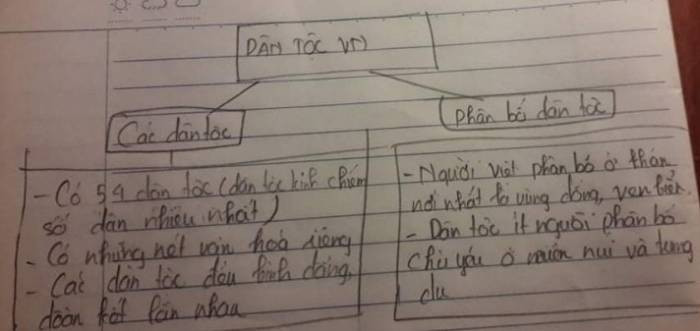 DÂN TỘC VN
Các dân tộc
Phân bố dân tộc
- Có 54 dân tộc (dân tộc kinh chiếm
số dân nhiều nhất)
- Có những nét văn hoá riêng
- Các dân tộc đều bình đẳng,
đoàn kết lẫn nhau
- Người việt phân bố ở
nơi nhất là vùng đồng, ven biển
- Dân tộc ít người phân bố
chủ yếu ở miền núi và trung
du